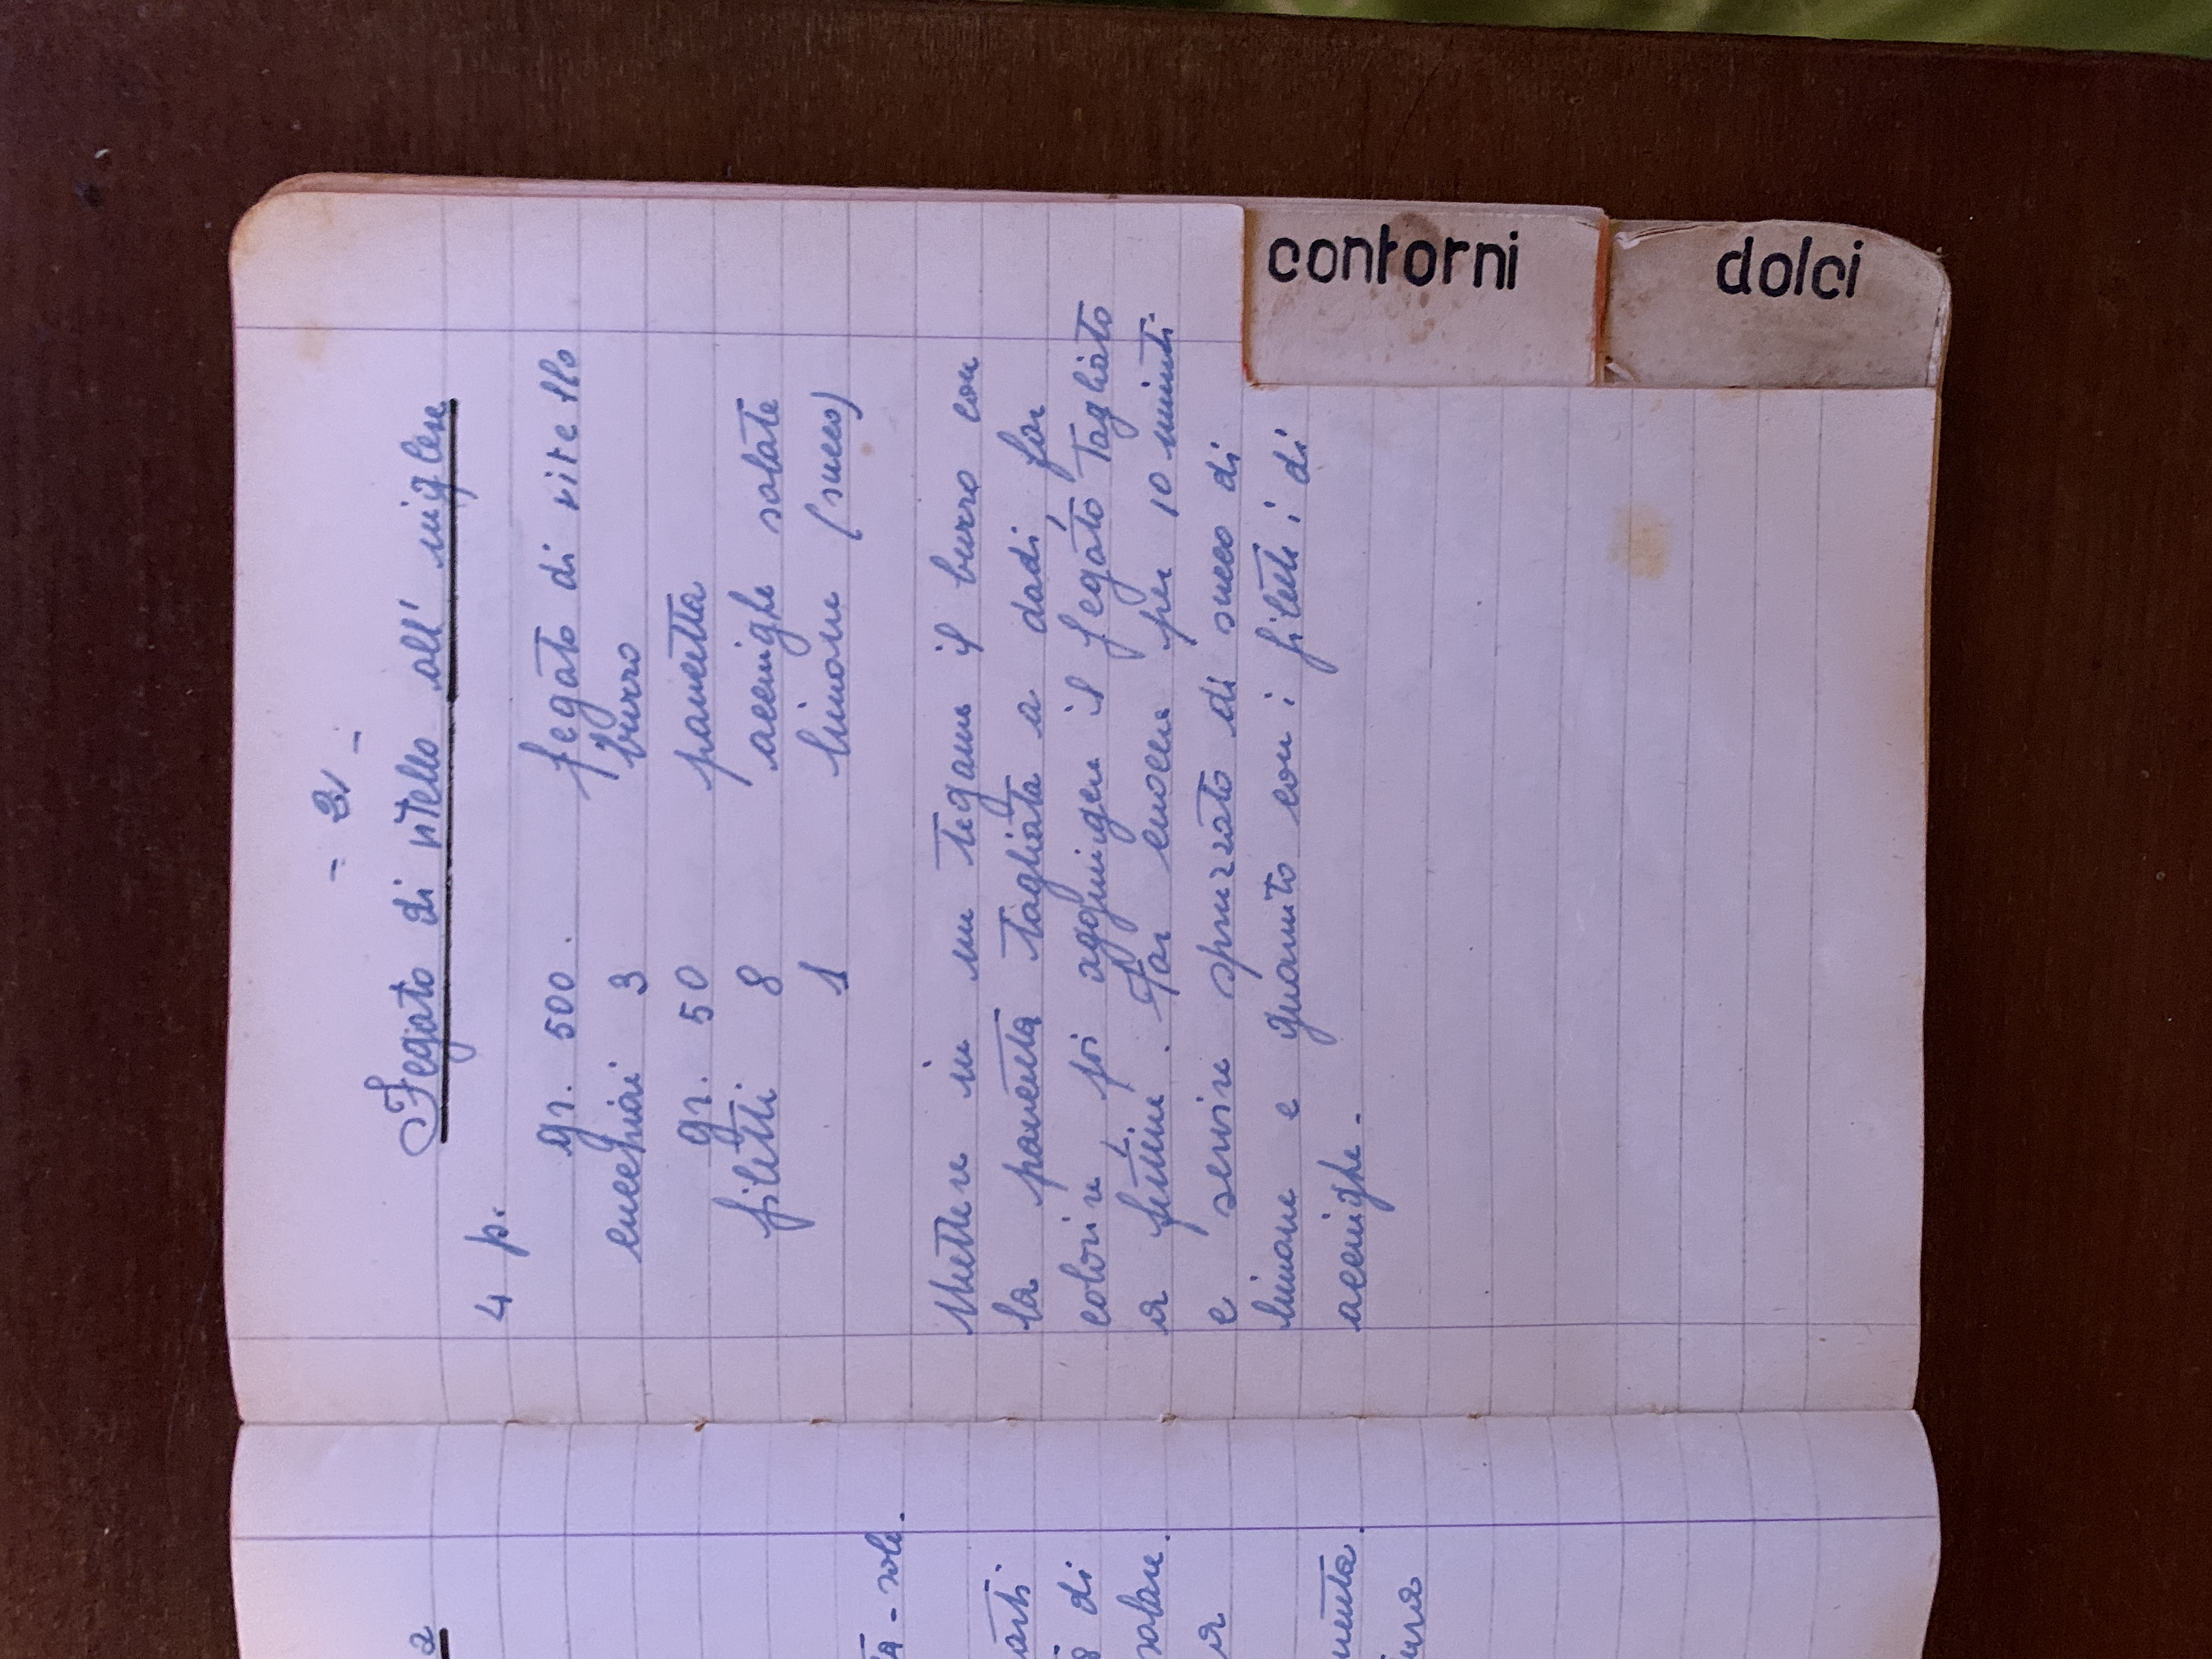 a
ta - sale.
arti
8 di
salare.
a
menta.
tura
- 21 -
Fegato di vitello all' inglese
4 p.
gr. 500. fegato di vitello
cucchiai 3 burro
gr. 50 pancetta
filetti 8 acciughe salate
1 limone (succo)
Mettere in un tegame il burro con
la pancetta tagliata a dadi, far
colorire, poi aggiungere il fegato tagliato
a fettine. Far cuocere per 10 minuti
e servire spruzzato di succo di
limone e guarnito con i filetti di
acciughe -
contorni
dolci